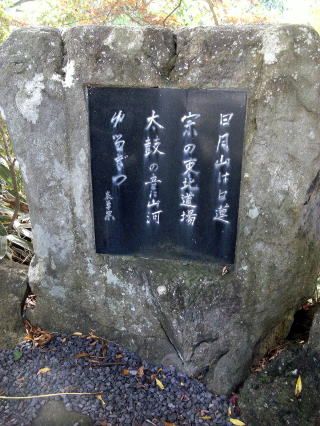 日月山は日蓮
宗の東北道場
太鼓の音山河
ゆるがつ